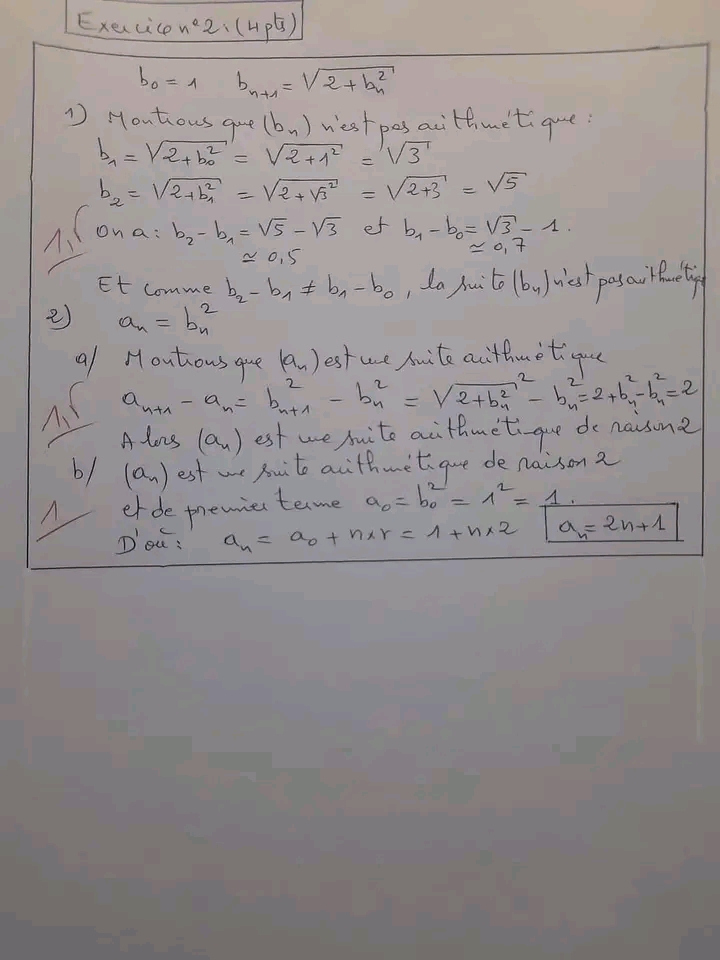 Exercice n°2: (4 pts)
b₀ = 1 bₙ₊₁ = √(2 + bₙ²)
1) Montrons que (bₙ) n'est pas arithmétique :
b₁ = √(2+b₀²) = √(2+1²) = √3
b₂ = √(2+b₁²) = √(2+√3²) = √(2+3) = √5
1,5 On a : b₂ - b₁ = √5 - √3 et b₁ - b₀ = √3 - 1.
≃ 0,5 ≃ 0,7
Et comme b₂ - b₁ ≠ b₁ - b₀, la suite (bₙ) n'est pas arithmétiq
2) aₙ = bₙ²
a/ Montrons que (aₙ) est une suite arithmétique
1,5 aₙ₊₁ - aₙ = bₙ₊₁² - bₙ² = √(2+bₙ²)² - bₙ² = 2+bₙ²-bₙ² = 2
Alors (aₙ) est une suite arithmétique de raison 2
b/ (aₙ) est une suite arithmétique de raison 2
1 et de premier terme a₀ = b₀² = 1² = 1.
D'où : aₙ = a₀ + n×r = 1 + n×2 aₙ = 2n+1